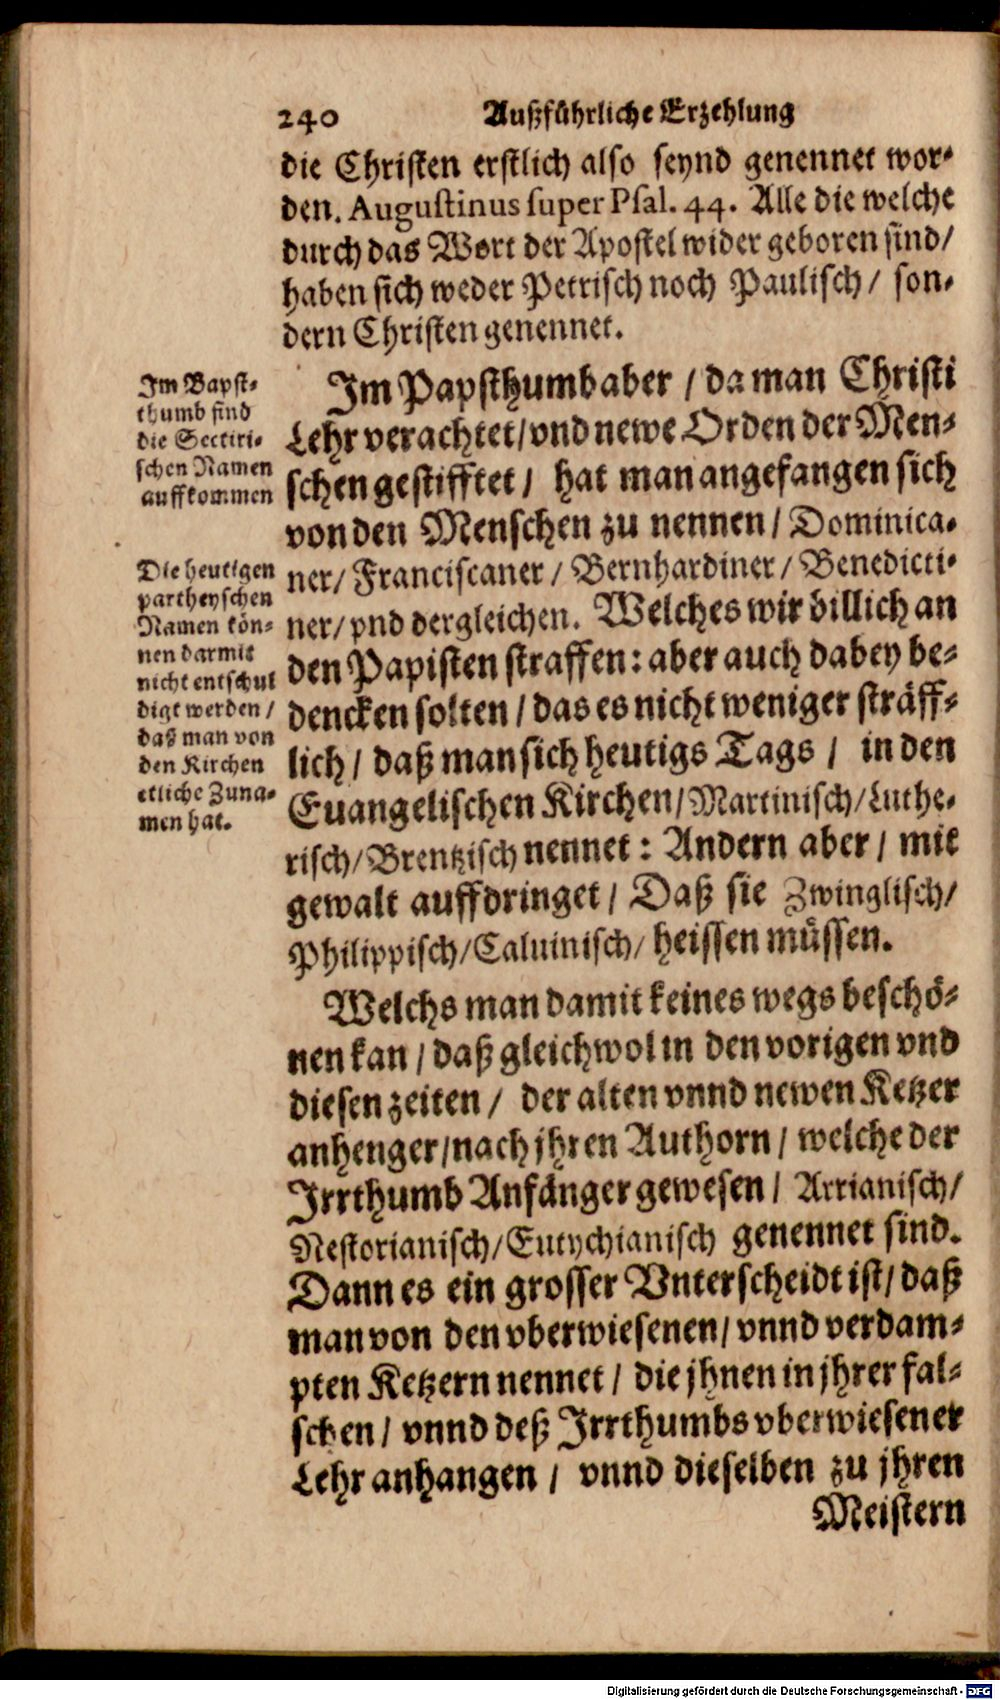 240 Außführliche Erzehlung
die Christen erstlich also seynd genennet wor-
den. Augustinus super Psal. 44. Alle die welche
durch das Wort der Apostel wider geboren sind/
haben sich weder Petrisch noch Paulisch/ son-
dern Christen genennet.
Im Bapst-
thumb sind
die Sectiri-
schen Namen
auffkommen
Im Papsthumb aber / da man Christi
Lehr verachtet/vnd newe Orden der Men-
schen gestifftet/ hat man angefangen sich
von den Menschen zu nennen/ Dominica-
ner/ Franciscaner/ Bernhardiner/ Benedicti-
ner/ vnd dergleichen. Welches wir billich an
den Papisten straffen: aber auch dabey be-
dencken solten / das es nicht weniger sträff-
lich/ daß man sich heutigs Tags / in den
Euangelischen Kirchen/Martinisch/Luthe-
risch/Brentzisch nennet: Andern aber/ mit
gewalt auffdringet/ Daß sie Zwinglisch/
Philippisch/Caluinisch/ heissen müssen.
Die heutigen
partheyschen
Namen kön-
nen darmit
nicht entschul
digt werden/
daß man von
den Kirchen
etliche Zuna-
men hat.
Welchs man damit keines wegs beschö-
nen kan / daß gleichwol in den vorigen vnd
diesen zeiten/ der alten vnnd newen Ketzer
anhenger/nach jhren Authorn/ welche der
Irrthumb Anfänger gewesen/ Arrianisch/
Nestorianisch/Eutychianisch genennet sind.
Dann es ein grosser Vnterscheidt ist/ daß
man von den vberwiesenen/ vnnd verdam-
pten Ketzern nennet / die jhnen in jhrer fal-
schen / vnnd deß Irrthumbs vberwiesener
Lehr anhangen / vnnd dieselben zu jhren
Meistern
Digitalisierung gefördert durch die Deutsche Forschungsgemeinschaft - DFG